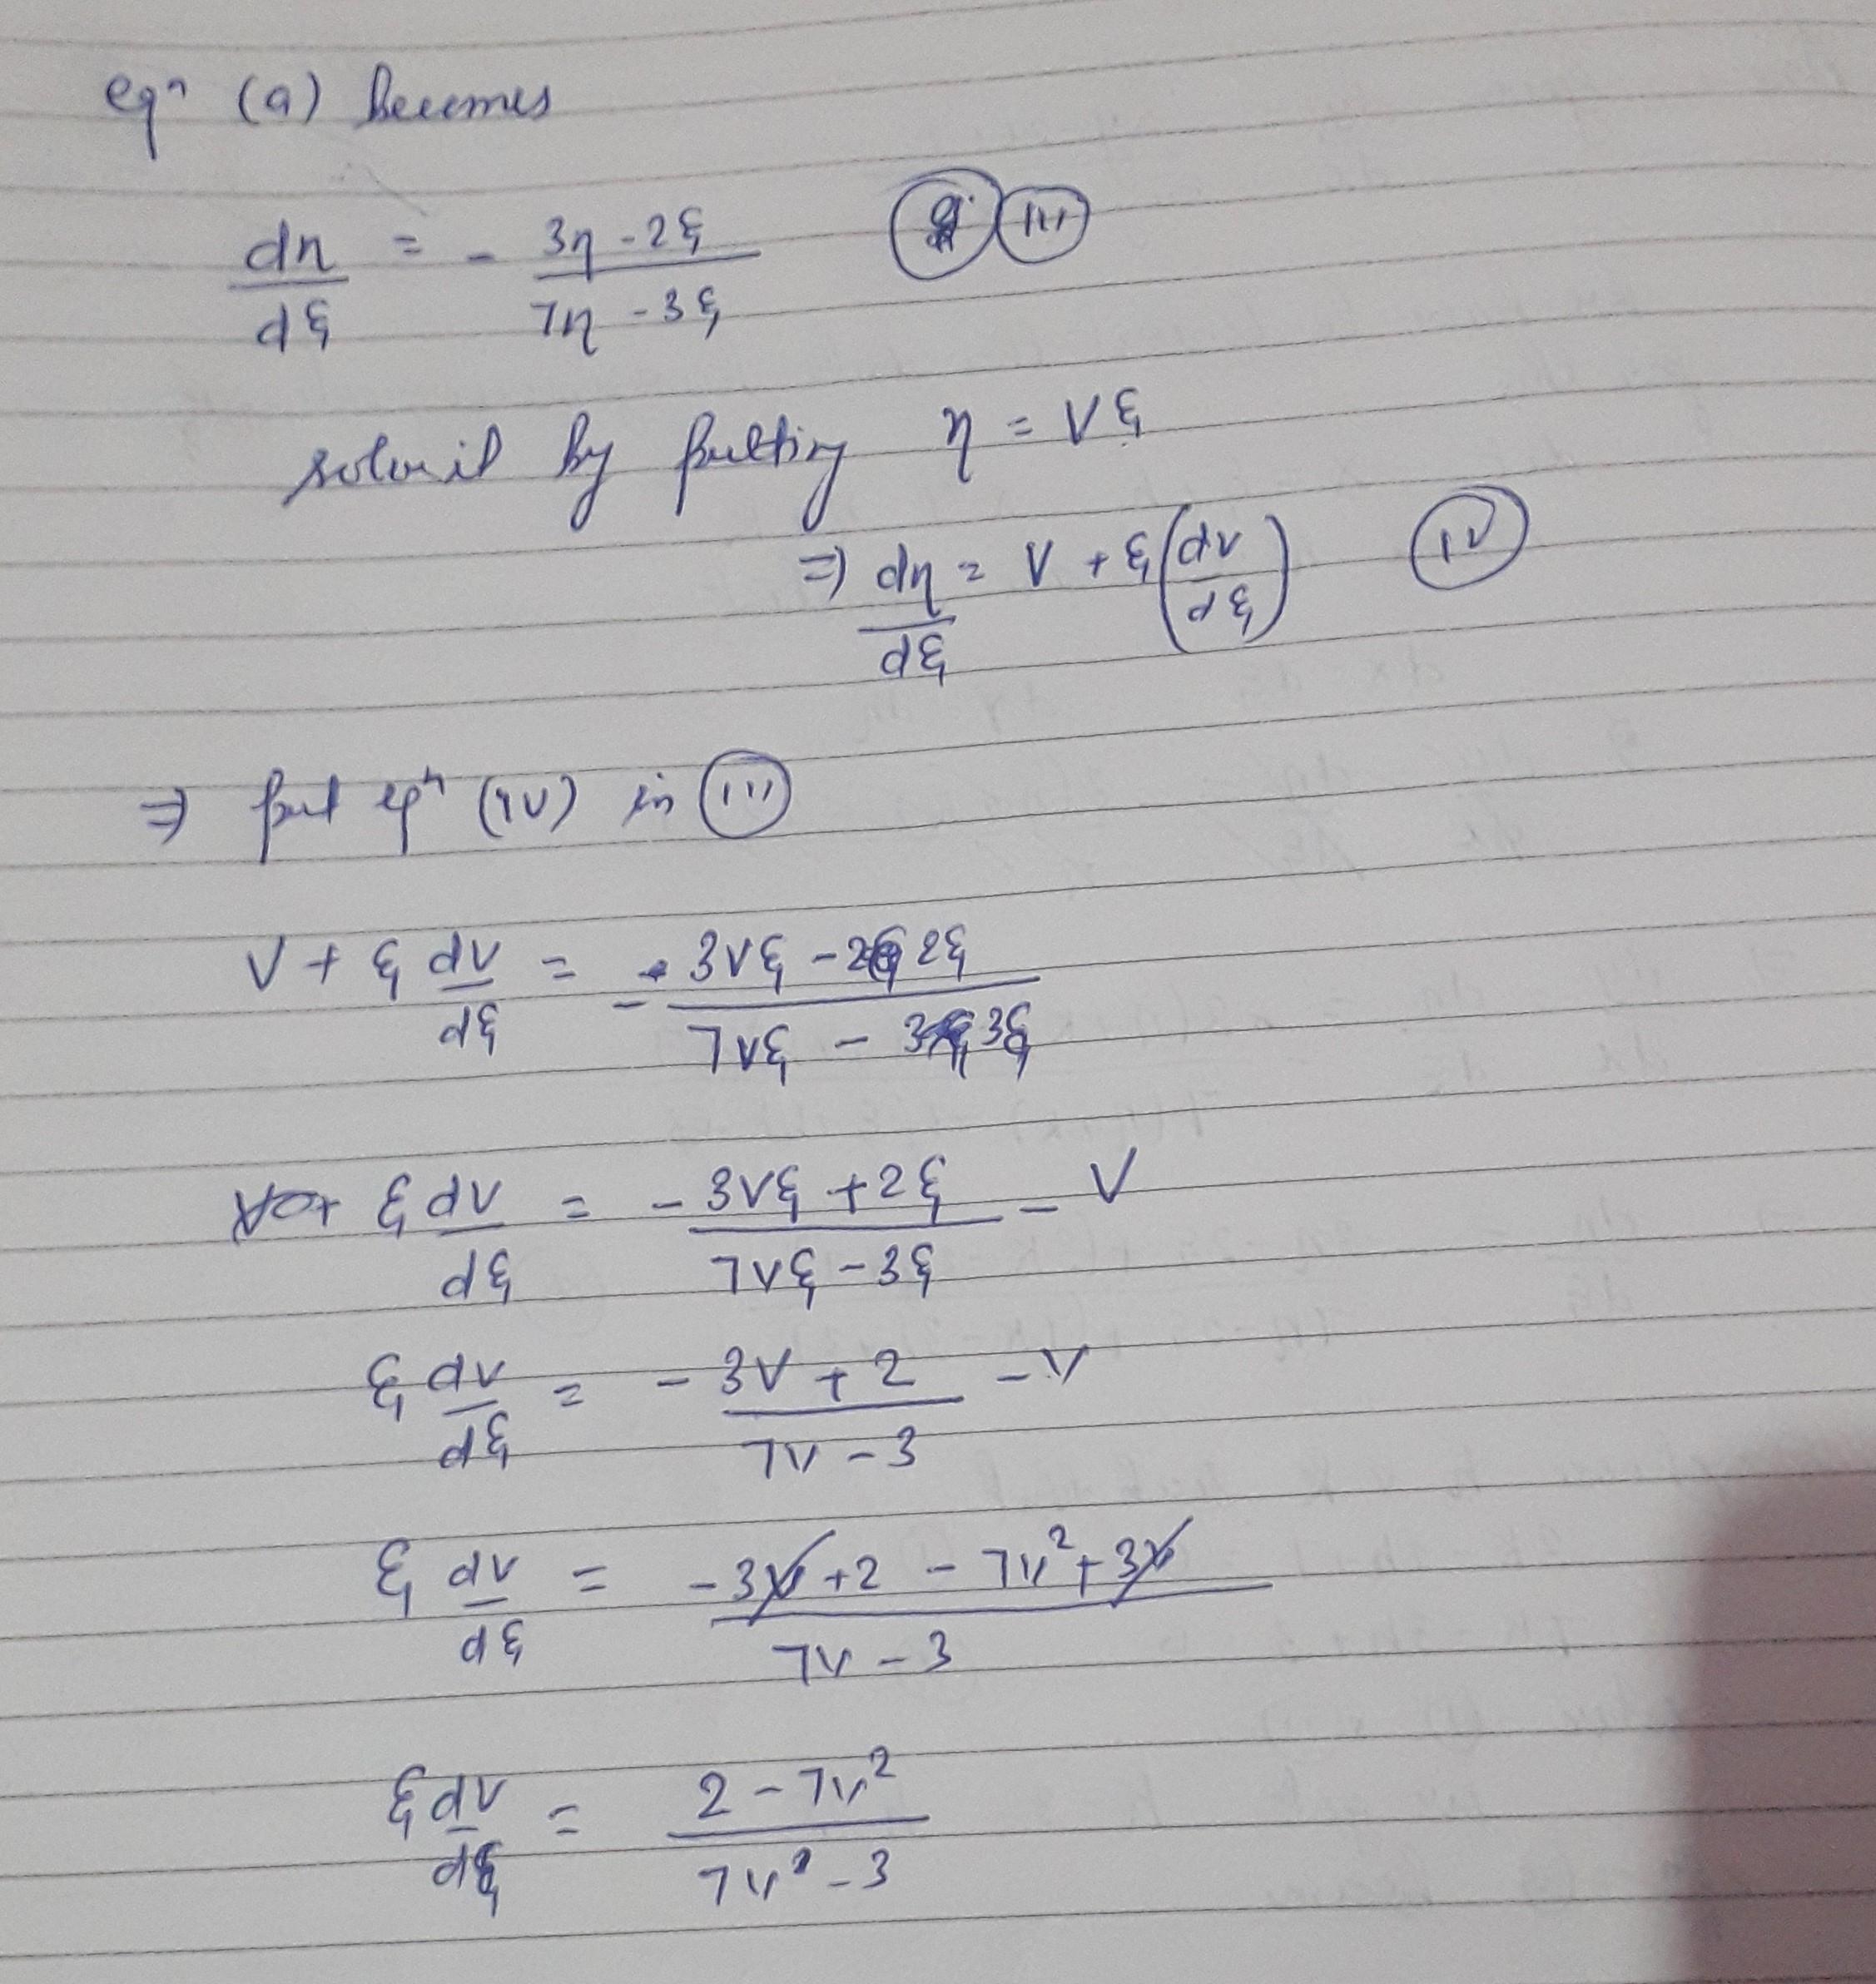 eqn (a) becomes
dη/dξ = - (3η - 2ξ)/(7η - 3ξ) (III)
solve it by putting η = vξ
⇒ dη/dξ = v + ξ(dv/dξ) (IV)
⇒ put eqn (IV) in (III)
v + ξ dv/dξ = - (3vξ - 2ξ)/(7vξ - 3ξ)
ξ dv/dξ = (-3vξ + 2ξ)/(7vξ - 3ξ) - v
ξ dv/dξ = (-3v + 2)/(7v - 3) - v
ξ dv/dξ = (-3v + 2 - 7v² + 3v)/(7v - 3)
ξ dv/dξ = (2 - 7v²)/(7v² - 3)